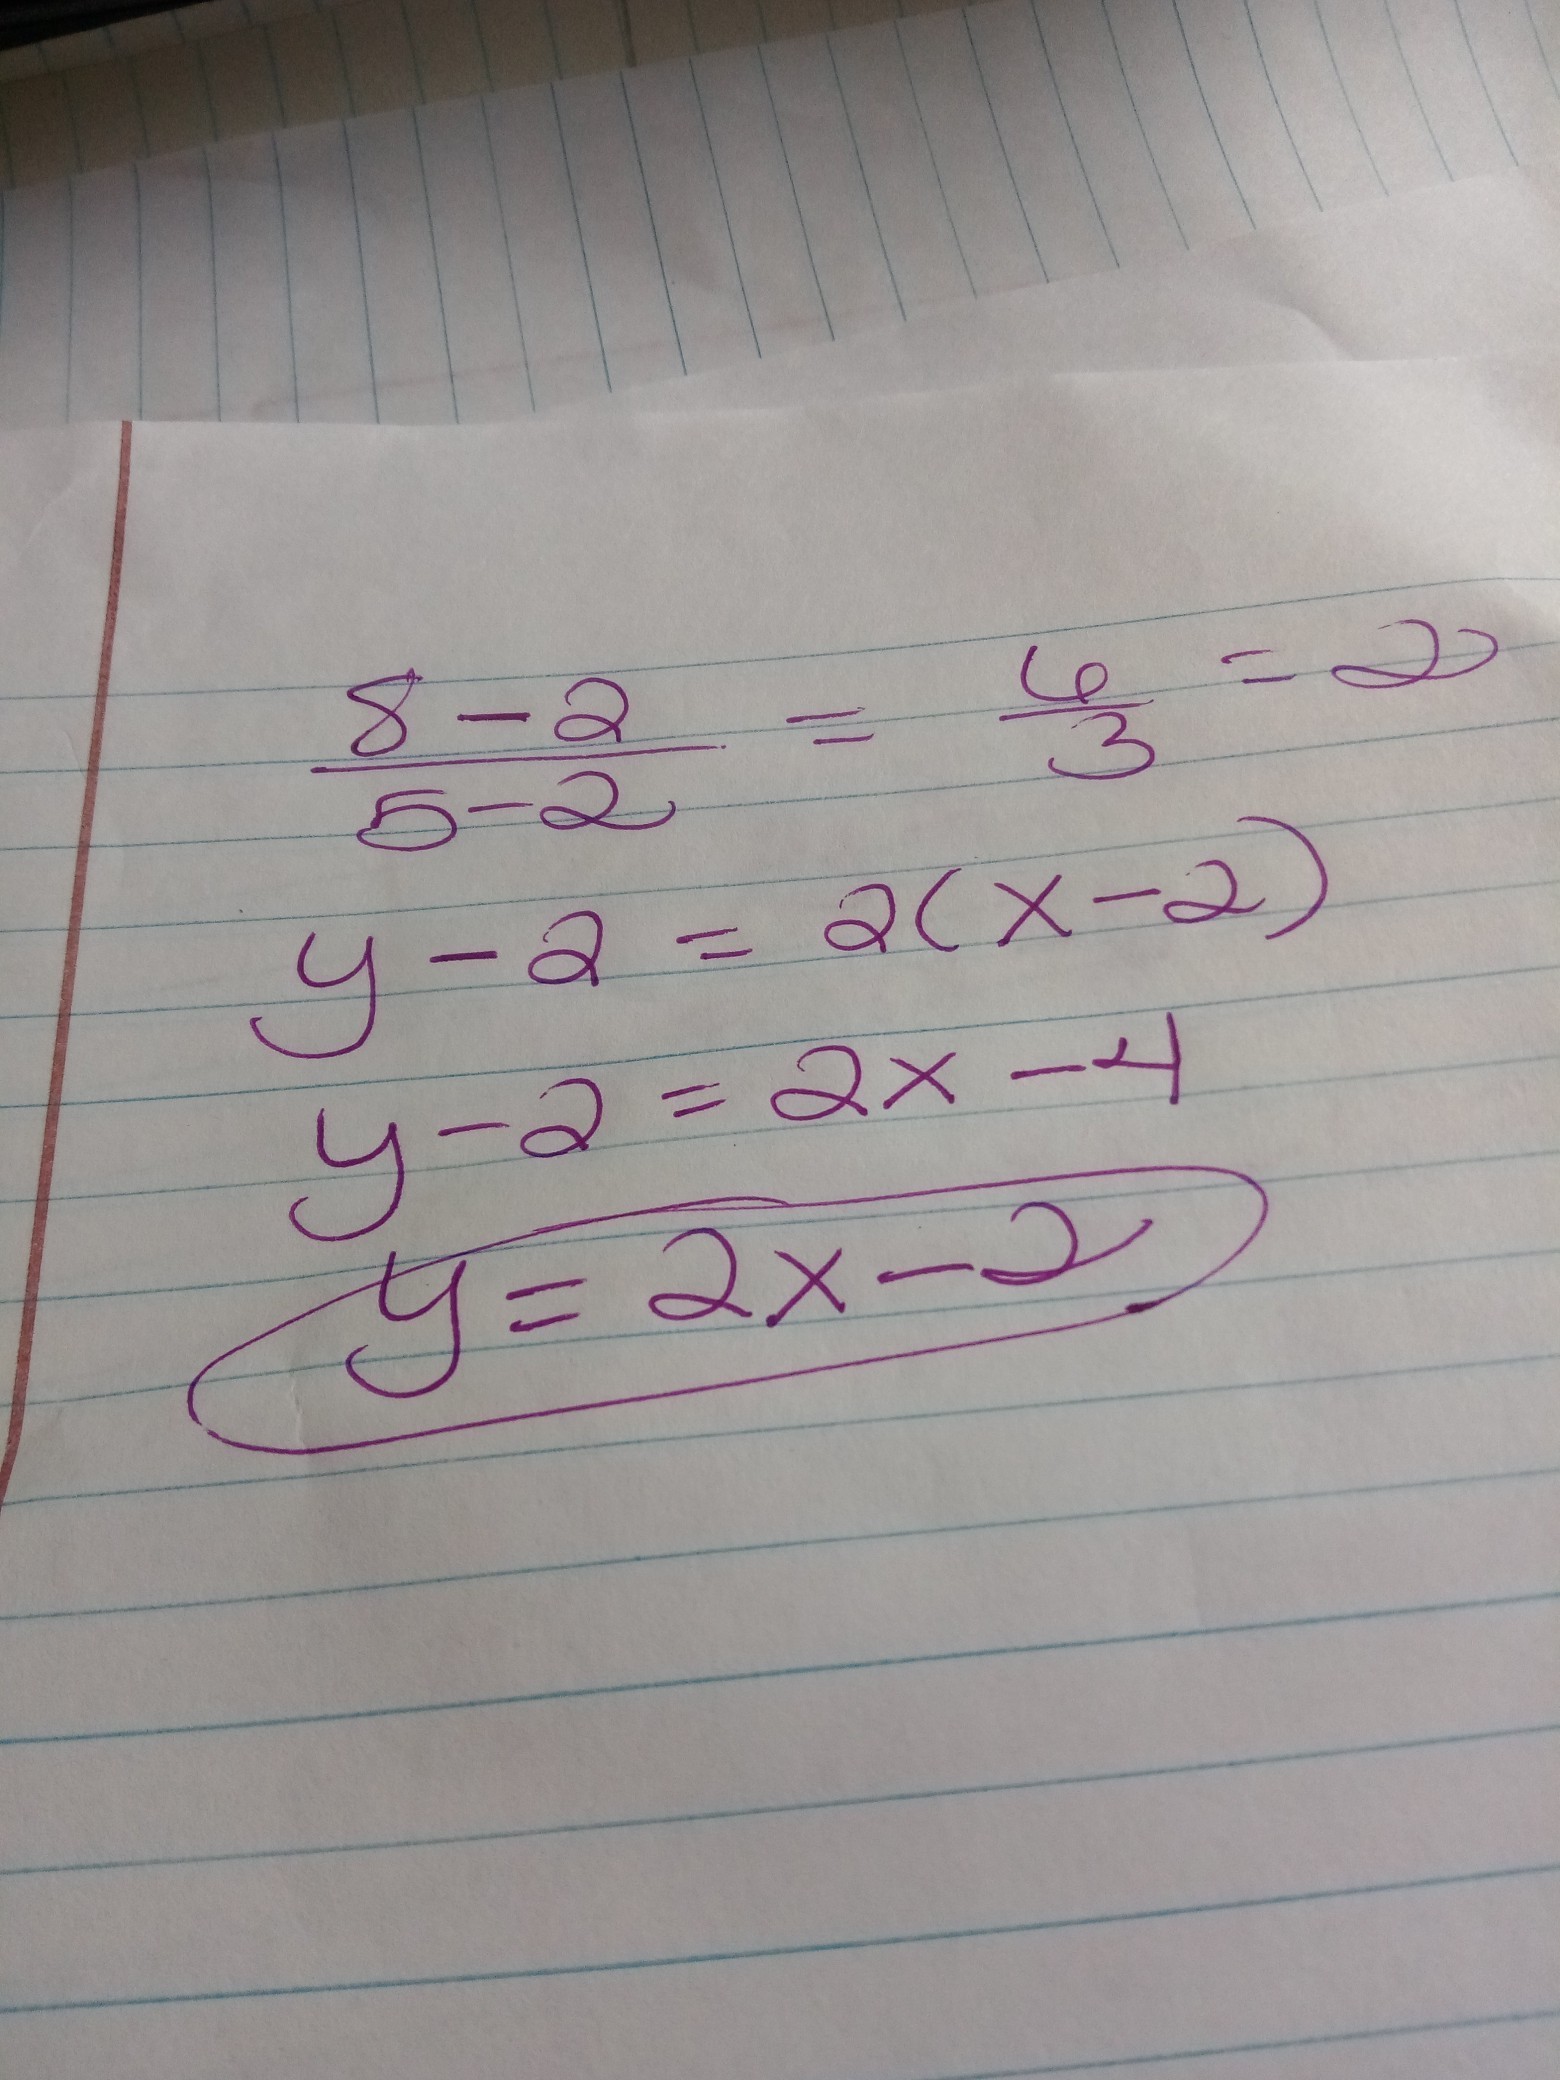 8-2/5-2 = 6/3 = 2
y-2 = 2(x-2)
y-2 = 2x-4
y = 2x-2